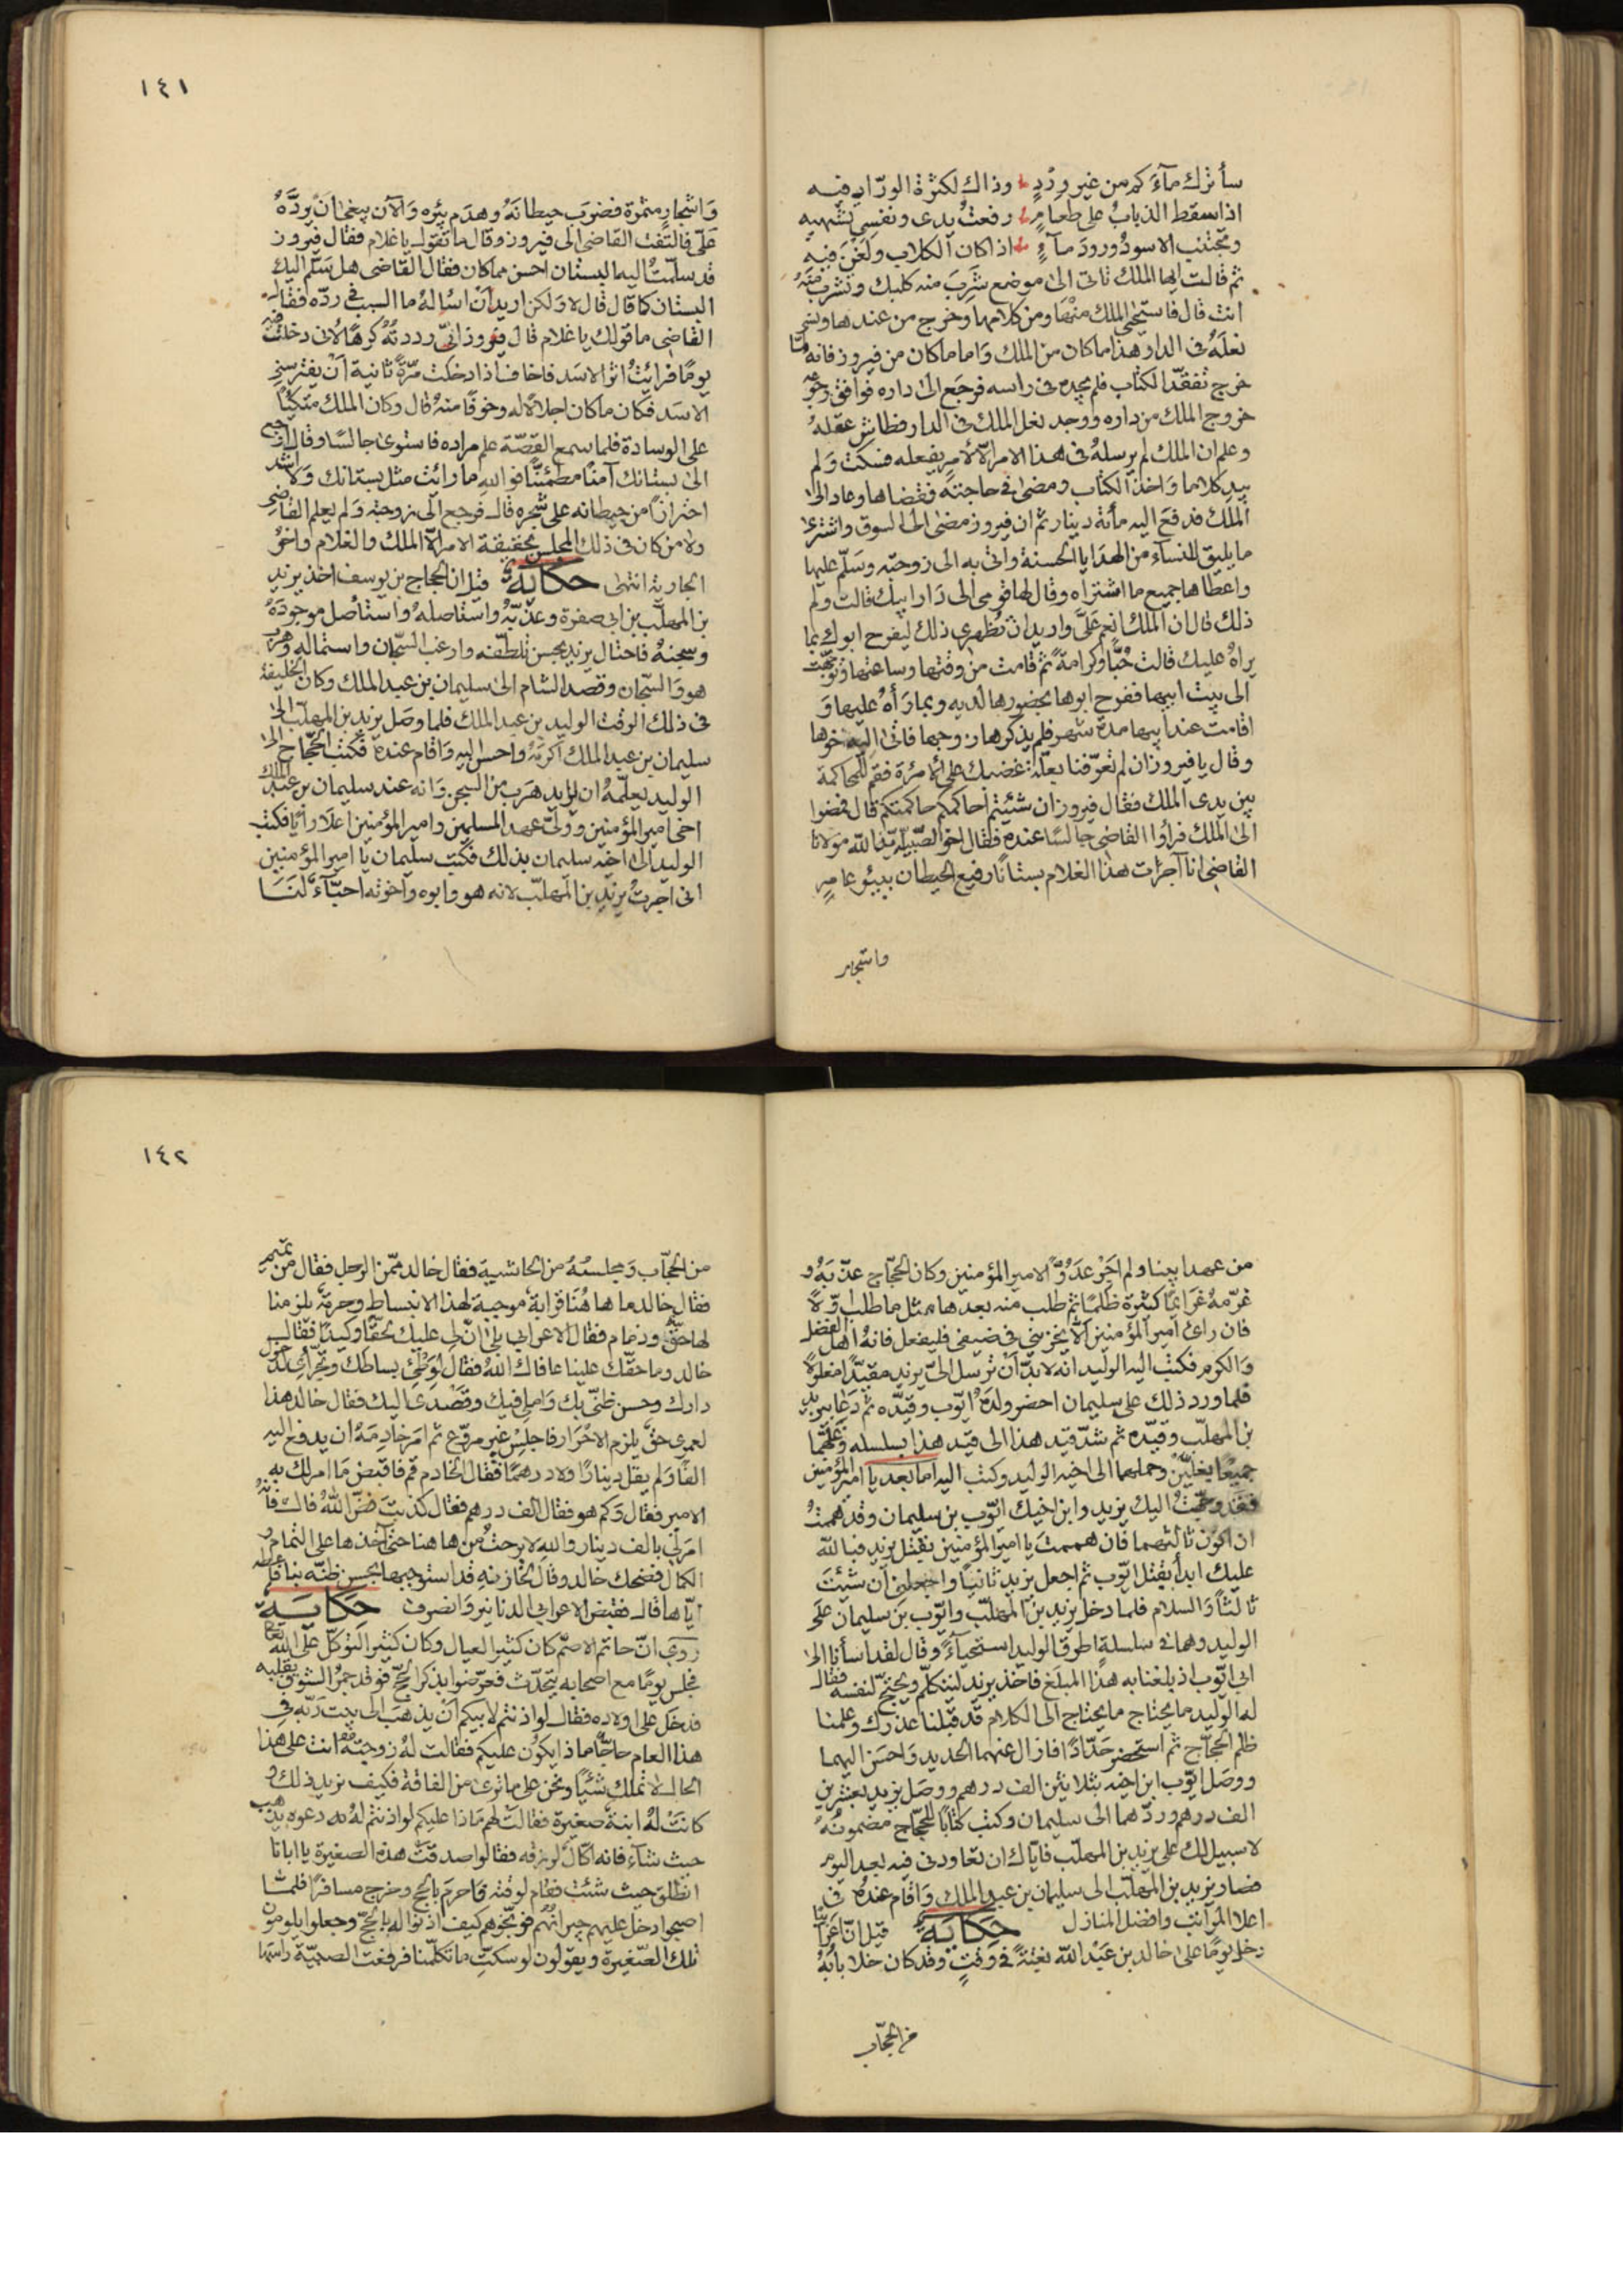 سأترك مآءكم من غير وِرْدٍ وذاك لكثرة الورّاد فيه
اذا سقط الذباب على طعامٍ رفعتُ يدى ونفسى تشتهيه
وتجتنب الاسودُ ورودَ مآءٍ اذا كان الكلاب ولَغْنَ فيه
ثم قالت ايها الملك تاتى الى موضع شَرِبَ منه كلبك وتشرب منهُ
انت قال فاستحى الملك منها ومن كلامها وخرج من عندها ونسى
نعلَهُ فى الدار هذا ما كان من الملك وَاما ما كان من فيروز فانه لمّا
خرج تفقّد الكتاب فلم يجده فى راسه فرجَع الى داره فوافق رجوعه
خروج الملك من داره ووجد نعل الملك فى الدار فطاش عقلهُ
وعلم ان الملك لم يرسلهُ فى هذا الامر الّا لامرٍ يفعله فسكت وَلم
يبدِ كلاما وَاخذ الكتاب ومضى فى حاجته فقضاها وعاد الى
الملك فدفعَ اليه مأئة دينار ثم ان فيروز مضى الى السوق واشترى
ما يليق للنسآء من الهدايا الحسنة واتى به الى زوجته وسَلّم عليها
واعطاها جميع ما اشتراه وقال لها قومى الى دَار ابيك قالت ولم
ذلك قال ان الملك انعم عَلىَّ واريد ان تظهرى ذلك ليفرح ابوك بما
يراهُ عليك قالت حُبًّا وكرامةً ثم قامت من وقتها وساعتها وتوجّهت
الى بيت ابيها ففرح ابوها بحضورها لديه وبما رَأهُ عليها وَ
اقامت عند ابيها مدة شهر فلم يذكرها زوجها فاتى اليه اخوها
وقال يا فيروز ان لم تعرّفنا بعلّة غضبك على الامرئة فقم للمحاكمة
بين يدى الملك فقال فيروز ان شئتم احاكمكم حاكمتكم قال فمضوا
الى الملك فراوُا القاضى جالسًا عنده فقال اخو الصبيّة ايّد الله مولانا
القاضى انا آجرت هذا الغلام بستانًا رفيع الحيطان ببئرٍ عامرٍ
واشجار
١٤١
وَاشجارٍ مثمرة فضرَب حيطانَهُ وهدَم بئره وَالآن يبغى انْ يردَّهُ
عَلىّ فالتَفت القاضى الى فيروز وقال ما تقول يا غلام فقال فيروز
قد سلّمتُ اليه البستان احسن مما كان فقال القاضى هل سَلّم اليك
البستان كما قال قال لا وَلكن اريد انْ اسْالهُ ما السبب فى ردّه فقال
القاضى ما قولك يا غلام قال فيروز انّى رددتُهُ كرهًا لانى دخلت فيه
يومًا فرائيتُ اثر الاسَد فاخاف اذا دخلت مرّةً ثانية اَنْ يفترسنى
الاسَد فكان ما كان اجلالًا له وخوفًا منهُ قال وكان الملك متكيًا
على الوسادة فلما سمع القصّة علم مراده فاستوى جالسًا وقال ارجع
الى بستانك آمنًا مطمئنًّا فوالله ما رائيت مثل بستانك وَلا اشد
احترازًا من حيطانه على شجره قال فرجع الى زوجته وَلم يعلم القاضى
ولا من كان فى ذلك المجلس بحقيقة الامر الّا الملك والغلام واخو
الجارية انتهى حكاية قيل ان الحجاج بن يوسف اخذ يزيد
بن المهلّب بن ابى صفرة وعذّبهُ واستاصلهُ واستاصل موجودَهُ
وسجنهُ فاحتال يزيد بحسن تلطّفه وارغب السّجان واستماله وهرب
هو وَالسّجان وقصد الشام الى سليمان بن عبد الملك وكان الخليفة
فى ذلك الوقت الوليد بن عبد الملك فلما وصَل يزيد بن المهلّب الى
سليمان بن عبد الملك اكرمهُ واحسن اليه وَاقام عندهُ فكتب الحجّاج الى
الوليد يعلمهُ ان يزيد هرَب من السجن وَانه عند سليمان بن عبد الملك
اخى امير المؤمنين وَولىّ عهد المسلمين وامير المؤمنين اعلا رأيًا فكتب
الوليد الى اخيه سليمان بذلك فكتب سليمان يا امير المؤمنين
انى اجرتُ يزيد بن المهلّب لانه هو وابوه واخوته احبّآء لنَا
من عهد ابينا ولم اُجِرْ عدُوًّا لامير المؤمنين وكان الحجّاج عذّبهُ و
غرّمهُ غرايمًا كثيرة ظلمًا ثم طلب منه بعدها مثل ما طلب اوّلًا
فان راى امير المؤمنين الّا يخزينى فى ضيفى فليفعل فانهُ اهل الفضل
وَالكرم فكتب اليه الوليد انه لا بدّ اَنْ ترسل الىّ يزيد مقيّدًا مغلولًا
فلما ورد ذلك على سليمان احضر ولدَهُ ايّوب وقيّده ثم دَعا بيزيد
بن المهلّب وقيّده ثم شدّ قيد هذا الى قيد هذا بسلسله وَغلّهما
جميعًا بغلّين وحملهما الى اخيه الوليد وكتب اليه امّا بعد يا امير المؤمنين
فقد وجّهتُ اليك يزيد وابن اخيك ايّوب بن سليمان وقد هممتُ
ان اكون ثالثهما فان هممتَ يا امير المؤمنين بقتل يزيد فبالله
عليك ابدأ بقتل ايّوب ثم اجعل يزيد ثانيًا واجعلنى اَن شئتَ
ثالثًا وَالسلام فلما دخل يزيد بن المهلّب وايّوب بن سليمان على
الوليد وهما فى سلسلةٍ اطرق الوليد استحيآءً وقال لقد اسأنا الى
ابى ايّوب اذ بلغنا به هذا المبلَغ فاخذ يزيد ليتكلّم ويحتجّ لنفسه فقال
لهُ الوليد ما يحتاج ما يحتاج الى الكلام قد قبلنا عذرك وعلمنا
ظلم الحجّاج ثم استحضر حَدّادًا فازال عنهما الحديد وَاحسَن اليهما
ووصَل ايّوب ابن اخيه بثلاثين الف درهم ووصَل يزيد بعشرين
الف درهم وردّهما الى سليمان وكتب كتابًا للحجّاج مضمونُهُ
لا سبيل لك على يزيد بن المهلّب فايّاك ان تعاودنى فيه بعد اليوم
فصار يزيد بن المهلّب الى سليمان بن عبد الملك وَاقام عندهُ فى
اعلا المراتب وافضل المنازل حكاية قيل انّ اعرَابيًّا
دخل يومًا على خالد بن عَبد الله بغتةً فى وقتٍ وقد كان خلا بابُهُ
من الحجّاب
١٤٢
من الحجّاب وَمجلسُهُ من الحاشية فقال خالد ممّن الرجل فقال من تميم
فقال خالد ما هاهُنَا قرابة موجبة لهذا الانبساط وحرمة يلزمنا
لها حقّ وذمام فقال الاعرابى بلى انّ لى عليك لحقًّا وكيدًا فقال
خالد وما حقّك علينا عافاك اللهُ فقال وَطْئِى بساطك وتجرّاى لدخول
دارك وحسن ظنّى بك وَاملى فيك وقصْدى اليك فقال خالد هذا
لعمرى حقّ يلزم الاحْرَار فاجلِسْ غير مروّع ثم امَر خادِمَهُ ان يدفع اليه
الفًا وَلم يقل دينارًا ولا درهمًا فقال الخادم قم فاقبض مَا امر لك به
الامير فقال وَكم هو فقال الف درهم فقال كذبتَ غضّ اللهُ فاك فانّهُ
امرَ لى بالف دينار والله لا برحتُ من هاهنا حتى آخذها على التمام و
الكمال فضحك خالد وقال لخازنه قد استوجبها بحسن ظنّه بنا فاعطه
ايّاها قال فقبض الاعرابى الدنانير وَانصرف حكاية
رَوى انّ حاتم الاصمّ كان كثير العيال وكان كثير التوكّل على الله تعالى
فجلس يومًا مع اصحابه يتحدّث فعرّضوا بذكر الحجّ فوقد جمرُ الشوق بقلبه
فدخل على اولاده فقال لو اذنتم لابيكم اَن يذهَب الى بيت رَبّه فى
هذا العام حاجًّا ماذا يكون عليكم فقالت لهُ زوجتهُ انت على هذا
الحال لا تملك شيًا ونحن على ما ترى من الفاقة فكيف تريد ذلك و
كانَتْ لهُ ابنة صغيرة فقالت لهم مَاذا عليكم لو اذنتم لهُ دعوه يذهب
حيث شآء فانه اكّال لرزقه فقالوا صدقت هذه الصغيرة يا ابانا
انطلق حيث شئت فقام لوقته فاحرمَ بالحج وخرج مسافرًا فلمّا
اصبحوا دخل عليهم جيرانُهم فوبّخوهم كيف اذنوا له بالحجّ وجعلوا يلومون
تلك الصّغيرة ويقولون لو سكتِّ ما تكلّمنا فرفعت الصبيّة راسَها